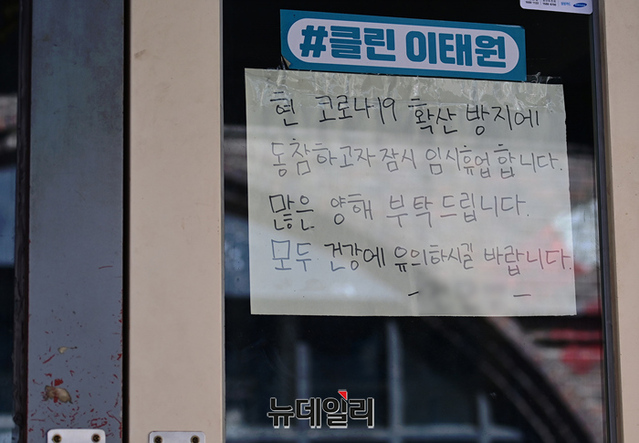 #클린 이태원
현 코로나19 확산 방지에
동참하고자 잠시 임시휴업 합니다.
많은 양해 부탁드립니다.
모두 건강에 유의하시길 바랍니다.
뉴데일리